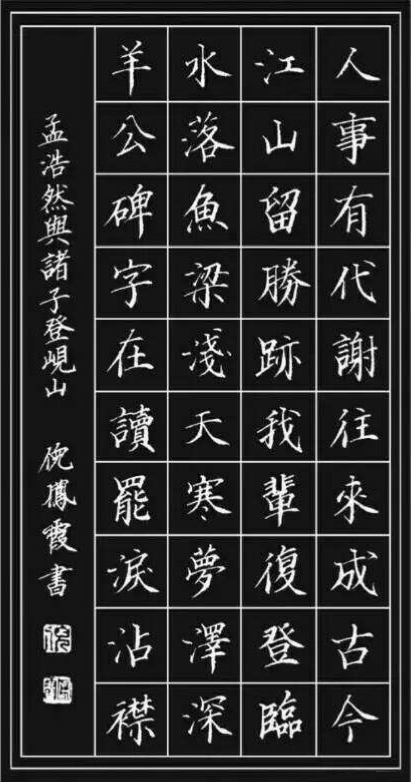 人事有代謝往來成古今
江山留勝跡我輩復登臨
水落魚梁淺天寒夢澤深
羊公碑字在讀罷淚沾襟
孟浩然與諸子登峴山 倪鳳霞書